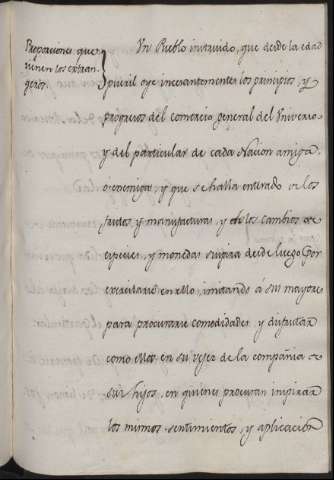 Precauciones que
tienen los extran-
geros.
Un Pueblo instruido, que desde la edad
pueril oye incesantemente los principios, y
progresos del comercio general del Universo
y del particular de cada Nacion amiga
o enemiga, y que se halla enterado de los
frutos, y manufacturas, y de los cambios de
especies, y monedas suspira desde luego por
exercitarse en ello, imitando á sus mayores
para procurarse comodidades, y disfrutar
como ellos en su vejez de la compañia de
sus hijos, en quienes procuran inspirar
los mismos sentimientos, y aplicacion